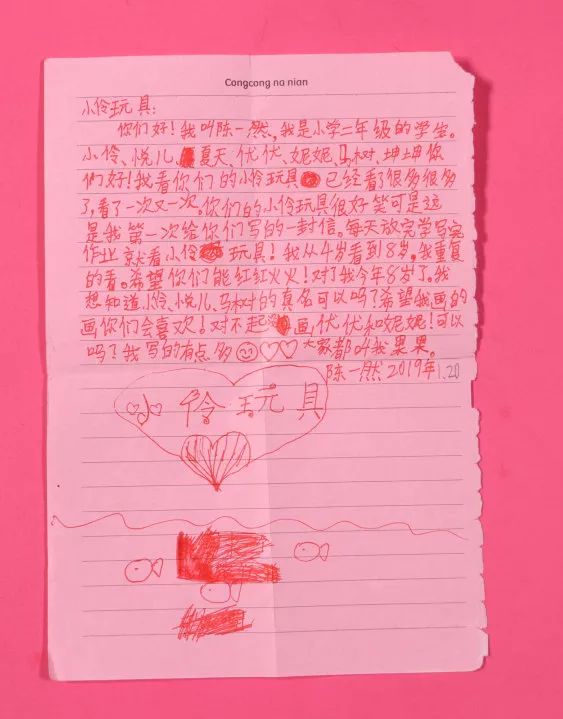 Congcong na nian
小伶玩具:
你们好!我叫陈一然,我是小学二年级的学生。
小伶、悦儿、夏天、优优、妮妮、马树、坤坤你
们好!我看你们的小伶玩具已经看了很多很多
了,看了一次又一次。你们的小伶玩具很好笑可是这
是我第一次给你们写的一封信。每天放完学写完
作业就去看小伶玩具!我从4岁看到8岁。我重复
的看。希望你们能红红火火!对了我今年8岁了。我
想知道小伶、悦儿、马树的真名可以吗?希望我画的
画你们会喜欢!对不起没画,优优和妮妮!可以
吗?我写的有点多大家都叫我果果。
陈一然2019年1.20
小伶玩具